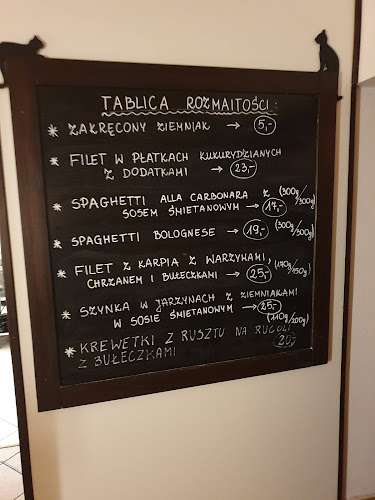 TABLICA ROZMAITOŚCI:
* ZAKRĘCONY ZIEMNIAK → 5,-
* FILET W PŁATKACH KUKURYDZIANYCH
Z DODATKAMI → 23,-
* SPAGHETTI ALLA CARBONARA Z (300g/300g)
SOSEM ŚMIETANOWYM → 17,-
* SPAGHETTI BOLOGNESE → 19,- (300g/300g)
* FILET Z KARPIA Z WARZYWAMI,
CHRZANEM I BUŁECZKAMI → 25,- (170g/150g)
* SZYNKA W JARZYNACH Z ZIEMNIAKAMI
W SOSIE ŚMIETANOWYM → 25,- (210g/200g)
* KREWETKI Z RUSZTU NA RUCOLI
Z BUŁECZKAMI 20,-